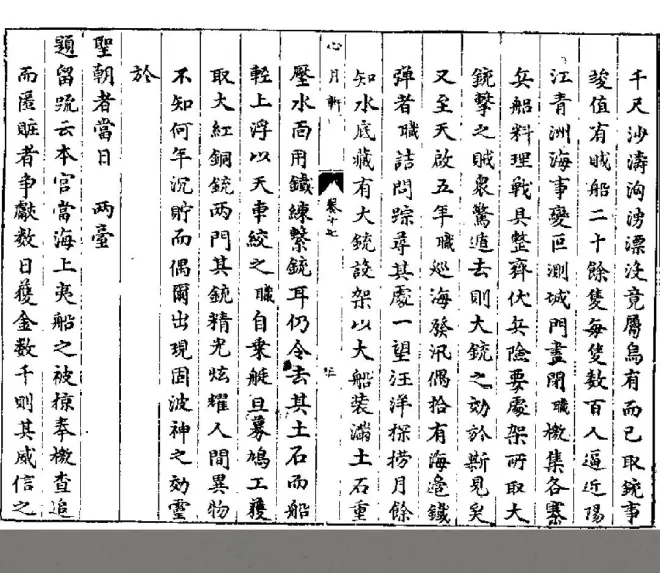 千尺沙濤洶湧漂沒竟屬烏有而已取銃事
竣值有賊船二十餘隻每隻數百人逼近陽
江青洲海事變叵測城門晝閉職檄集各寨
兵船料理戰具整齊伏兵險要處架所取大
銃擊之賊眾驚遁去則大銃之効於斯見矣
又至天啟五年職巡海發汛偶拾有海邉鐵
彈者職詰問踪尋其處一望汪洋探撈月餘
知水底藏有大銃設架以大船装滿土石重
心月軒 卷十七
壓水面用鐵練繫銃耳仍令去其土石而船
輕上浮以天車絞之職自乗艇旦募鳩工獲
取大紅銅銃兩門其銃精光炫耀人間異物
不知何年沉貯而偶爾出現固波神之効靈
於
聖朝者當日 兩臺
題留疏云本官當海上夷船之被掠奉檄查追
而匿賍者争獻數日獲金数千則其威信之